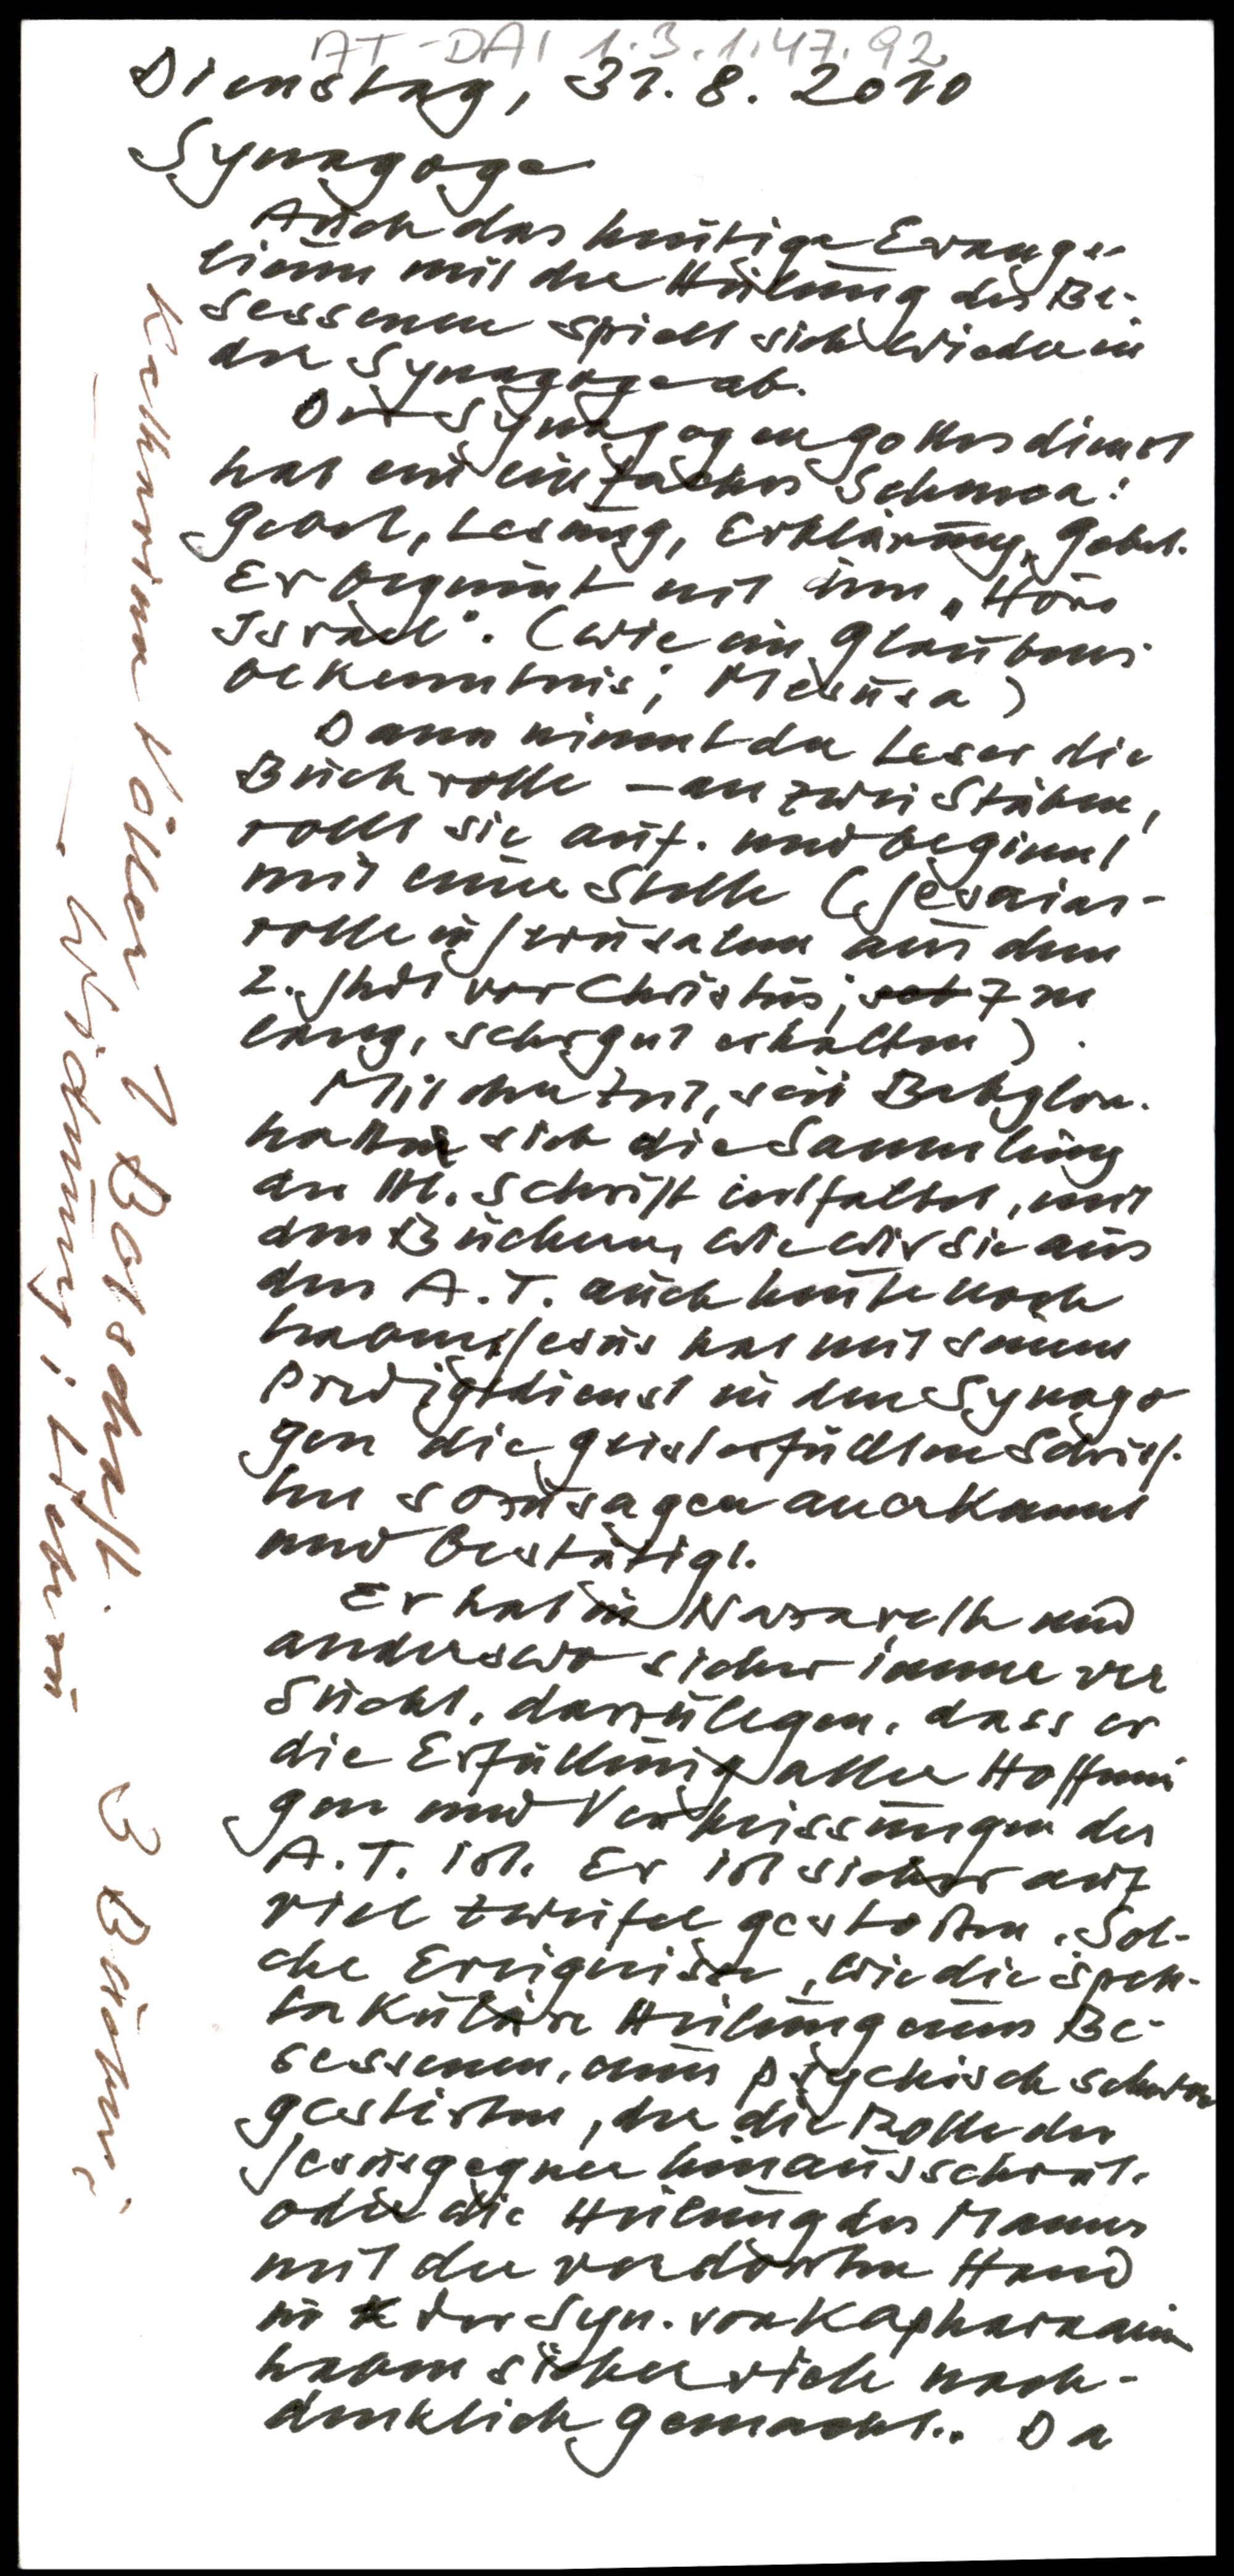 AT-DAI 1.3.1.47.92
Dienstag, 31.8.2010
Synagoge
Auch das heutige Evange-
lium mit der Heilung des Be-
sessenen spielt sich wieder in
der Synagoge ab.
Der Synagogengottesdienst
hat ein einfaches Schema:
Gebet, Lesung, Erklärung, Gebet.
Er beginnt mit dem „Höre
Israel". (wie ein Glaubens
bekenntnis; Mesusa)
Dann nimmt der Leser die
Buchrolle – an zwei Stäben,
rollt sie auf. und beginnt
mit einer Stelle (Jesaias-
rolle in Jerusalem aus dem
2. Jhdt vor Christus; 7 m
lang, sehr gut erhalten).
Mit der Zeit, seit Babylon.
hatte sich die Sammlung
der Hl. Schrift entfaltet, mit
den Büchern, wie wir sie aus
dem A.T. auch heute noch
haben. Jesus hat mit seinem
Predigtdienst in den Synago
gen die geisterfüllten Schrif-
ten sozusagen anerkannt
und bestätigt.
Er hat in Nazareth und
anderswo sicher immer ver
sucht, darzulegen, dass er
die Erfüllung aller Hoffnun
gen und Verheissungen des
A.T. ist. Er ist sicher auf
viel Zweifel gestoßen. Sol-
che Ereignisse, wie die spek-
takuläre Heilung eines Be-
sessenen, eines psychisch schwer
gestörten, der die Rolle der
Jesusgegner hinausschreit,
oder die Heilung des Mannes
mit der verdorrten Hand
in der Syn. von Kapharnaum
haben sicher viele nach-
denklich gemacht.. Da
Katharina Völker 1 Botschaft.
– Widmung;
3 Bücher;